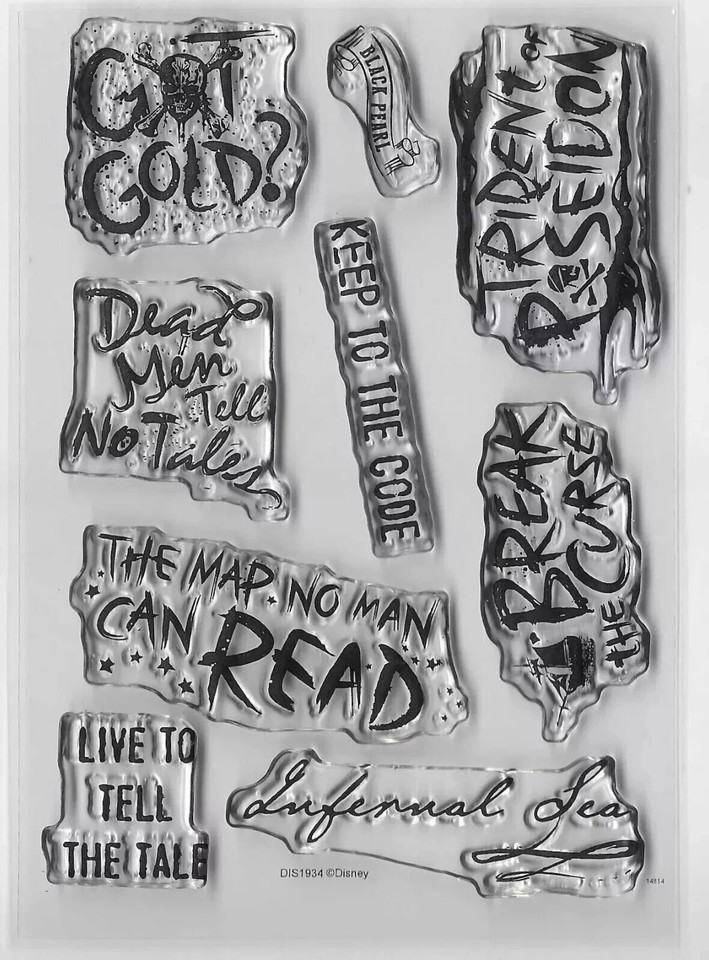 GOT
GOLD?
BLACK PEARL
TRIDENT OF
POSEIDON
KEEP TO THE CODE
Dead
Men
Tell
No Tales
BREAK
THE CURSE
THE MAP NO MAN
CAN READ
LIVE TO
TELL
THE TALE
Infernal Sea
DIS1934 ©Disney
14814